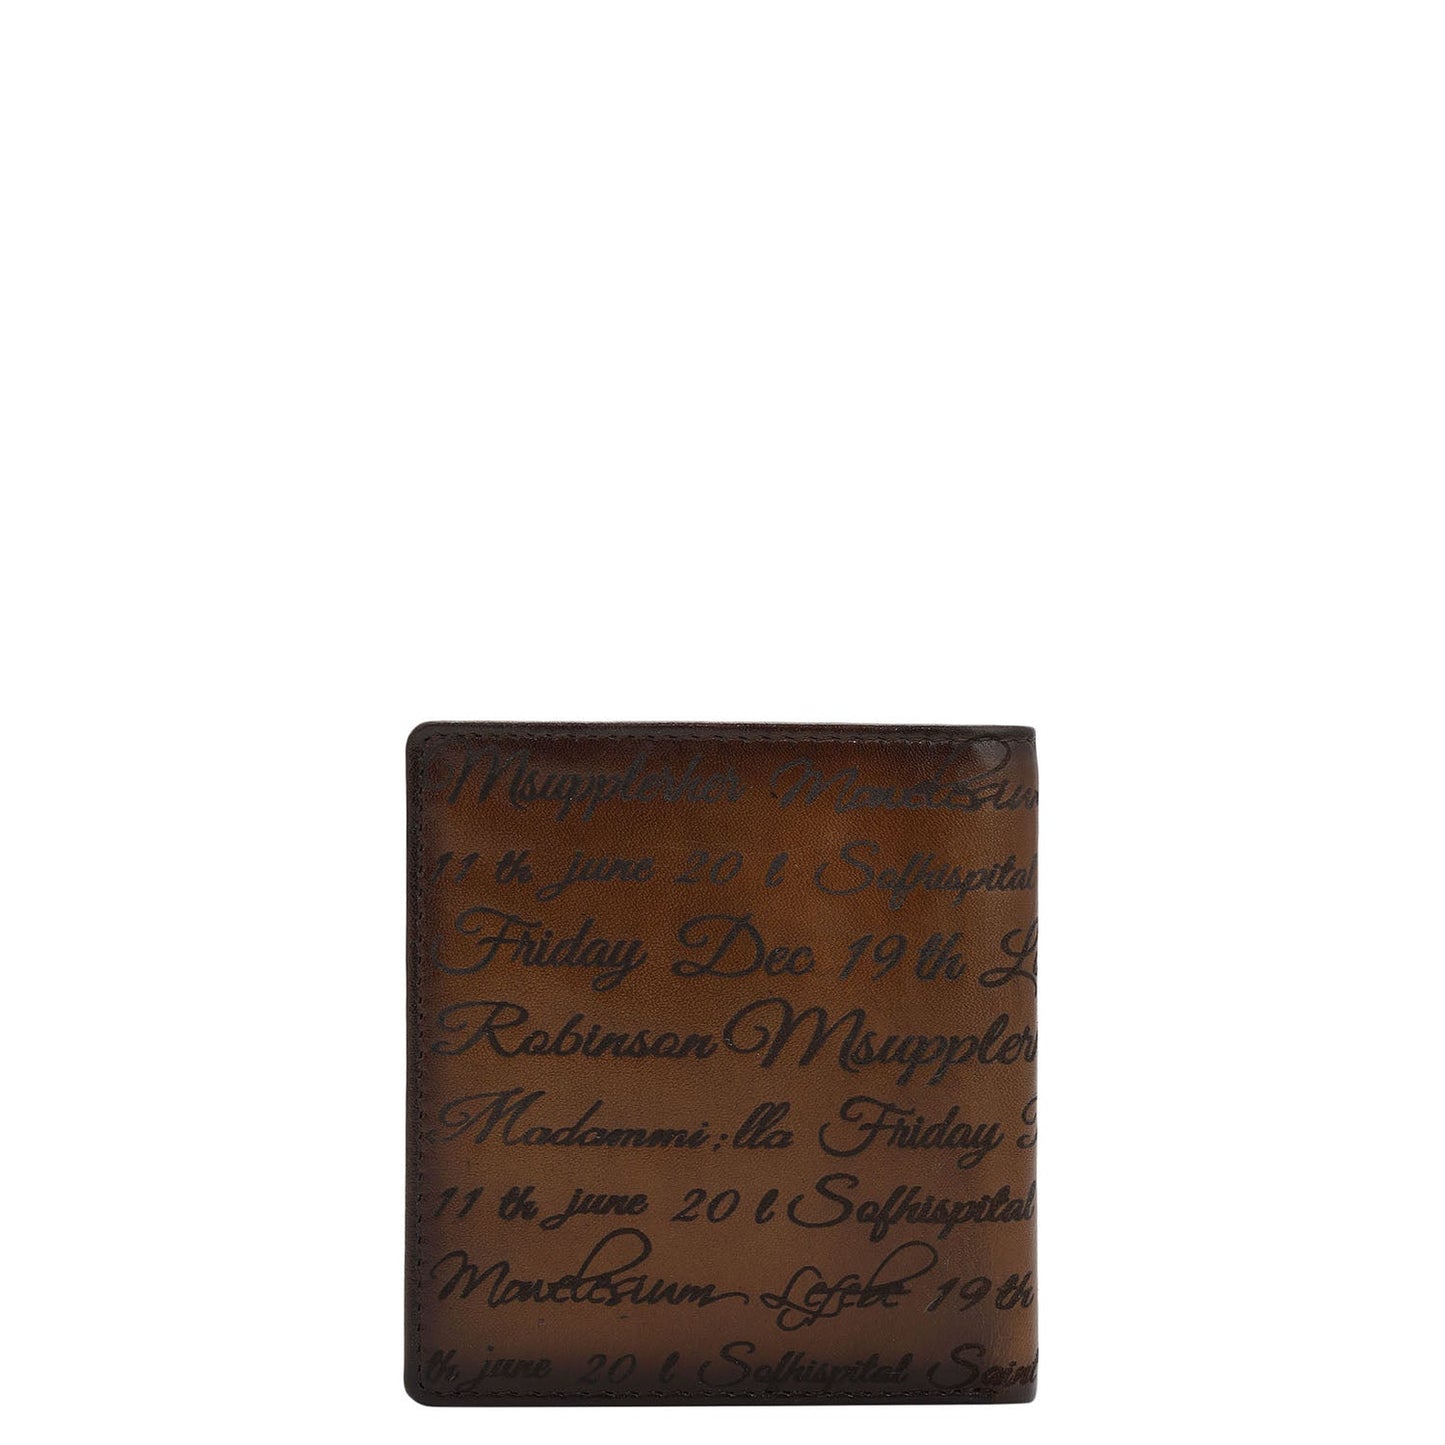 Msupplerher Movelesium
11 th june 20 l Sofhispital
Friday Dec 19 th
Robinson Msuppler
Madammi;lla Friday
11 th june 20 l Sofhispital
Movelesium Lefebe 19 th
th june 20 l Sofhispital Saint